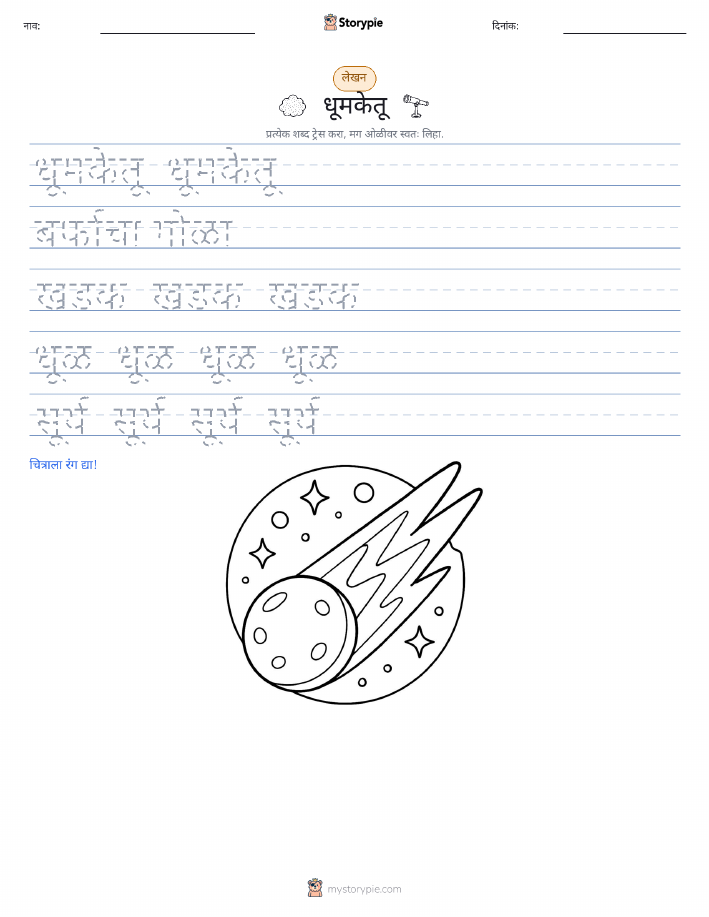 नाव:
Storypie
दिनांक:
लेखन
धूमकेतू
प्रत्येक शब्द ट्रेस करा, मग ओळीवर स्वतः लिहा.
धूमकेतू धूमकेतू
बर्फाचा गोळा
खडक खडक खडक
धूळ धूळ धूळ धूळ
सूर्य सूर्य सूर्य सूर्य
चित्राला रंग द्या!
mystorypie.com